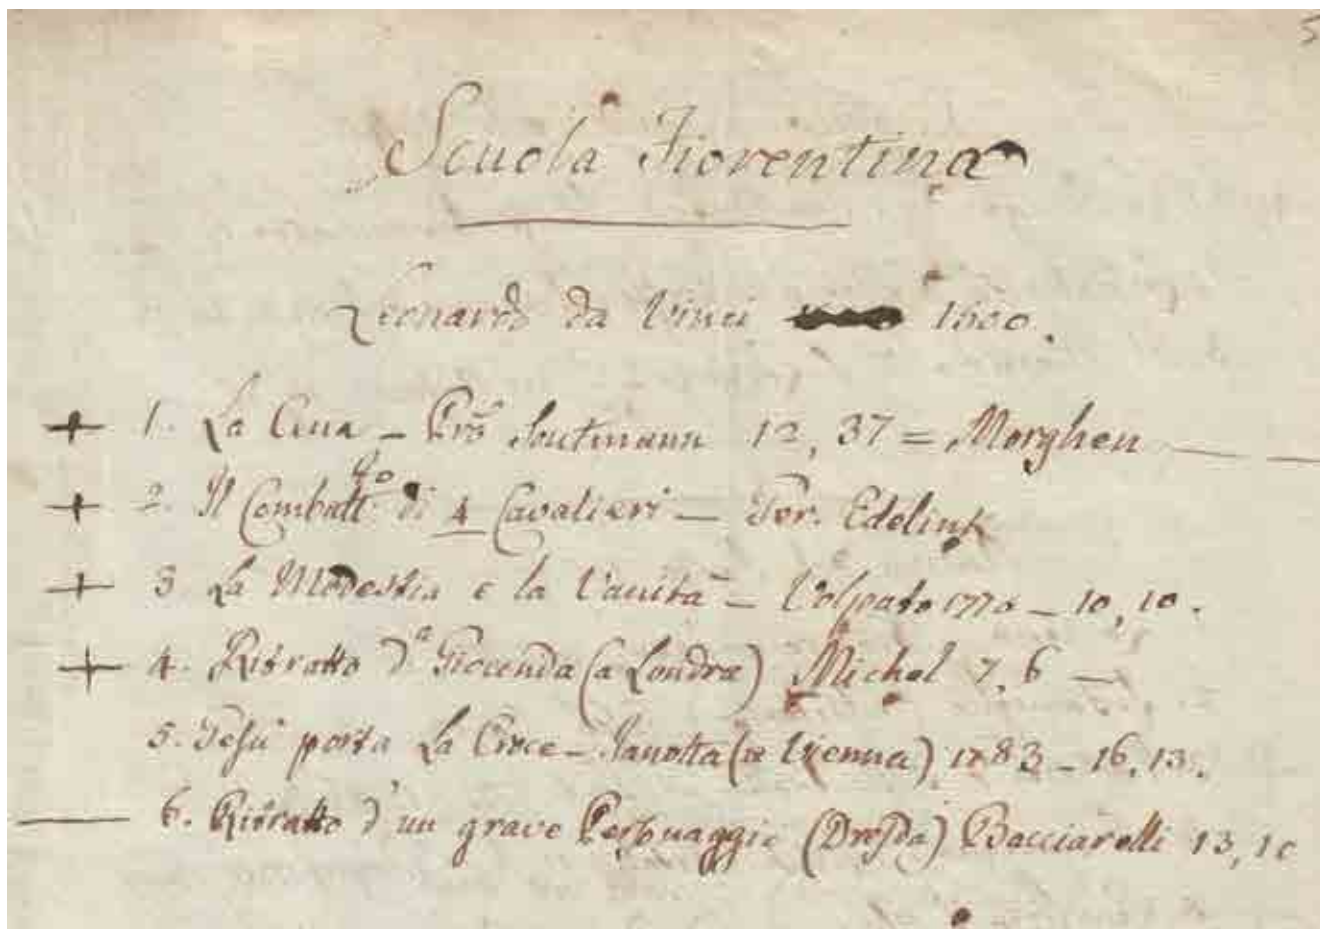 5
Scuola Fiorentina
Leonardo da Vinci 1500.
+ 1. La Cena – Pro Soutmann 12, 37 = Morghen
+ 2. Il Combatt.to di 4 Cavalieri – Ger. Edelink
+ 3. La Modestia e la Vanità – Volpato 1770 – 10, 10.
+ 4. Ritratto d.a Gioconda (a Londra) Michel 7, 6 –
5. Gesù porta La Croce – Janotta (a Vienna) 1783 – 16, 13.
— 6. Ritratto d'un grave Personaggio (Dresda) Bacciarelli 13, 10